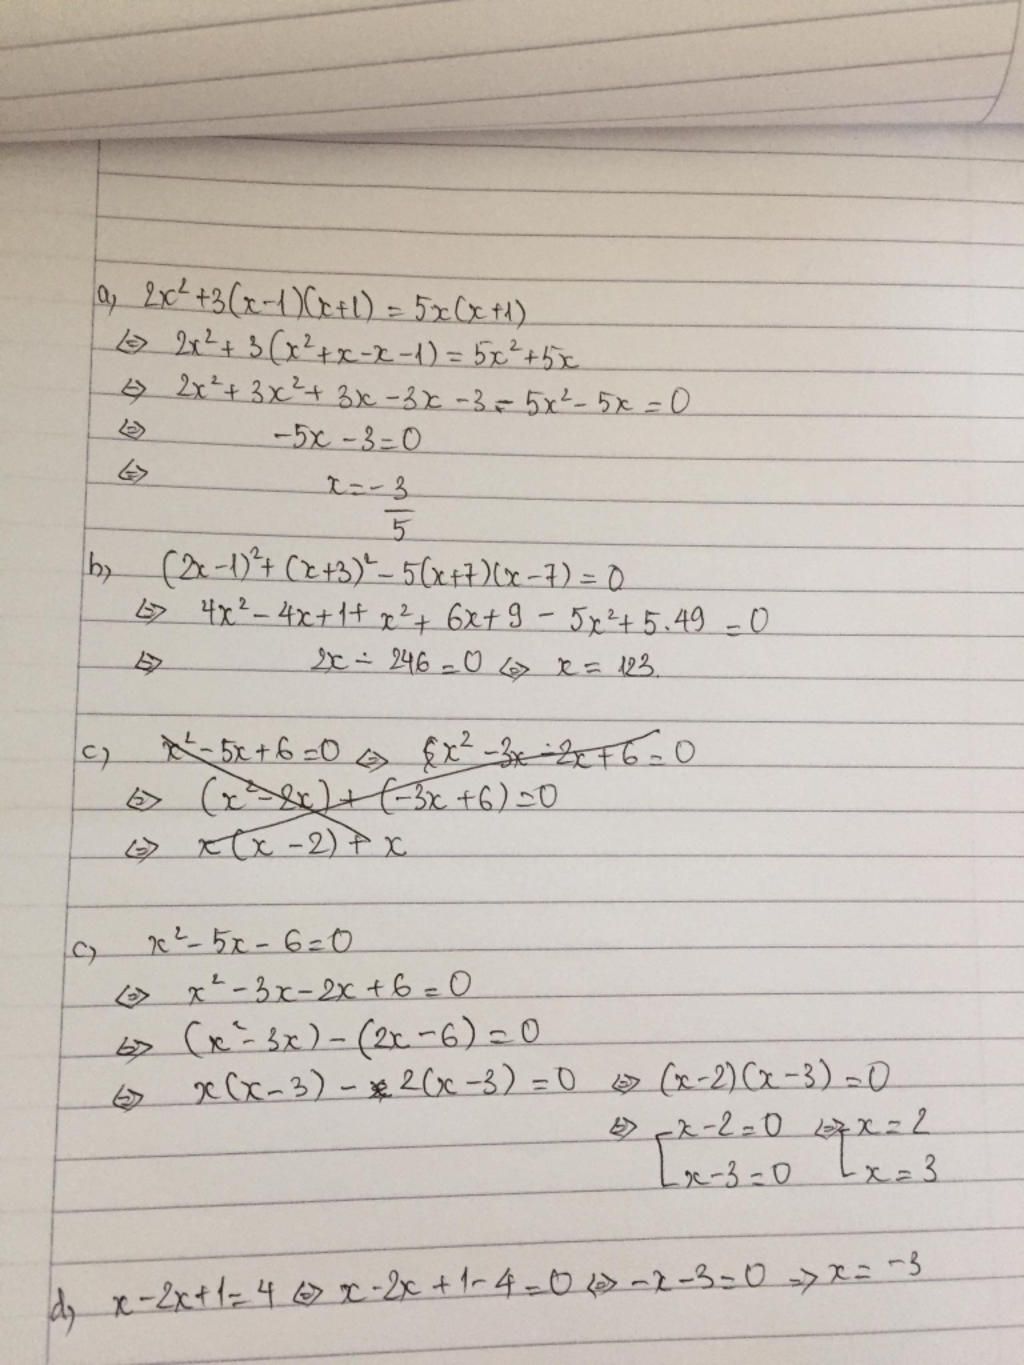 a, 2x² + 3(x-1)(x+1) = 5x(x+1)
⇔ 2x² + 3(x² + x - x - 1) = 5x² + 5x
⇔ 2x² + 3x² + 3x - 3x - 3 - 5x² - 5x = 0
⇔ -5x - 3 = 0
⇔ x = -3/5
b, (2x-1)² + (x+3)² - 5(x+7)(x-7) = 0
⇔ 4x² - 4x + 1 + x² + 6x + 9 - 5x² + 5.49 = 0
⇔ 2x - 246 = 0 ⇔ x = 123.
c, x² - 5x + 6 = 0 ⇔ x² - 3x - 2x + 6 = 0
⇔ (x² - 2x) + (-3x + 6) = 0
⇔ x(x - 2) + x
c, x² - 5x - 6 = 0
⇔ x² - 3x - 2x + 6 = 0
⇔ (x² - 3x) - (2x - 6) = 0
⇔ x(x - 3) - 2(x - 3) = 0 ⇔ (x-2)(x-3) = 0
⇔ [x - 2 = 0 ⇔ [x = 2
x - 3 = 0 x = 3
d, x - 2x + 1 = 4 ⇔ x - 2x + 1 - 4 = 0 ⇔ -x - 3 = 0 ⇒ x = -3